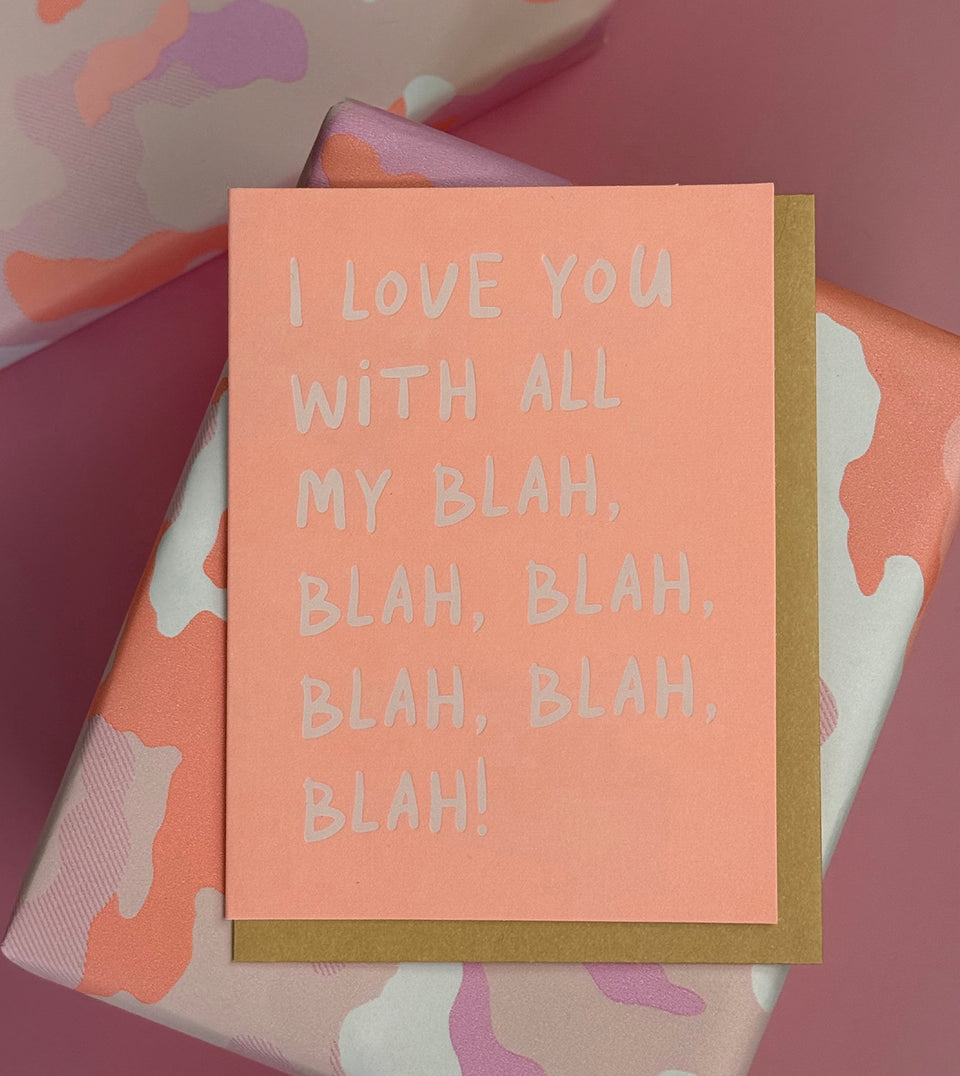 I LOVE YOU
WITH ALL
MY BLAH,
BLAH, BLAH,
BLAH, BLAH,
BLAH!